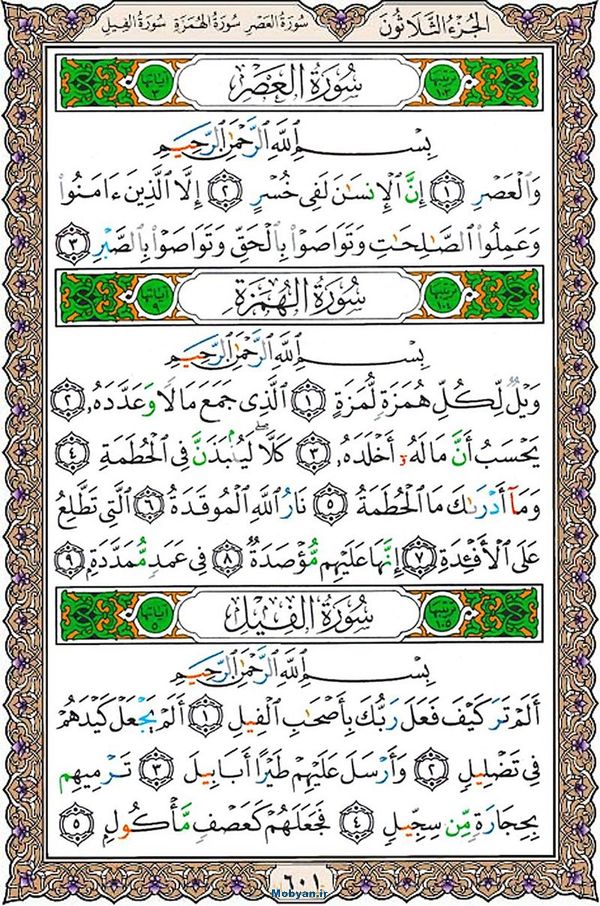 الجُزءُ الثَّلَاثُونَ سُورَةُ العَصْرِ سُورَةُ الهُمَزَةِ سُورَةُ الفِيلِ
سُورَةُ العَصْرِ
بِسْمِ ٱللَّهِ ٱلرَّحْمَٰنِ ٱلرَّحِيمِ
وَٱلْعَصْرِ ١ إِنَّ ٱلْإِنسَٰنَ لَفِى خُسْرٍ ٢ إِلَّا ٱلَّذِينَ ءَامَنُوا۟
وَعَمِلُوا۟ ٱلصَّٰلِحَٰتِ وَتَوَاصَوْا۟ بِٱلْحَقِّ وَتَوَاصَوْا۟ بِٱلصَّبْرِ ٣
سُورَةُ الهُمَزَةِ
بِسْمِ ٱللَّهِ ٱلرَّحْمَٰنِ ٱلرَّحِيمِ
وَيْلٌ لِّكُلِّ هُمَزَةٍ لُّمَزَةٍ ١ ٱلَّذِى جَمَعَ مَالًا وَعَدَّدَهُۥ ٢
يَحْسَبُ أَنَّ مَالَهُۥٓ أَخْلَدَهُۥ ٣ كَلَّا ۖ لَيُنۢبَذَنَّ فِى ٱلْحُطَمَةِ ٤
وَمَآ أَدْرَىٰكَ مَا ٱلْحُطَمَةُ ٥ نَارُ ٱللَّهِ ٱلْمُوقَدَةُ ٦ ٱلَّتِى تَطَّلِعُ
عَلَى ٱلْأَفْـِٔدَةِ ٧ إِنَّهَا عَلَيْهِم مُّؤْصَدَةٌ ٨ فِى عَمَدٍ مُّمَدَّدَةٍۭ ٩
سُورَةُ الفِيلِ
بِسْمِ ٱللَّهِ ٱلرَّحْمَٰنِ ٱلرَّحِيمِ
أَلَمْ تَرَ كَيْفَ فَعَلَ رَبُّكَ بِأَصْحَٰبِ ٱلْفِيلِ ١ أَلَمْ يَجْعَلْ كَيْدَهُمْ
فِى تَضْلِيلٍ ٢ وَأَرْسَلَ عَلَيْهِمْ طَيْرًا أَبَابِيلَ ٣ تَرْمِيهِم
بِحِجَارَةٍ مِّن سِجِّيلٍ ٤ فَجَعَلَهُمْ كَعَصْفٍ مَّأْكُولٍۭ ٥
٦٠١
Mobyan.ir